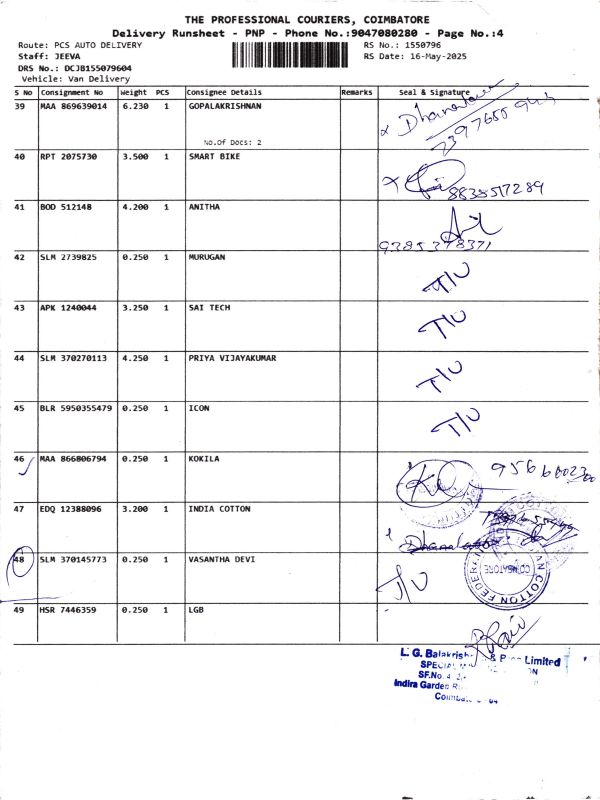 THE PROFESSIONAL COURIERS, COIMBATORE
Delivery Runsheet - PNP - Phone No.:9047080280 - Page No.:4
Route: PCS AUTO DELIVERY RS No.: 1550796
Staff: JEEVA RS Date: 16-May-2025
DRS No.: DCJB155079604
Vehicle: Van Delivery
S No Consignment No Weight PCS Consignee Details Remarks Seal & Signature
39 MAA 869639014 6.230 1 GOPALAKRISHNAN
No.Of Docs: 2
40 RPT 2075730 3.500 1 SMART BIKE
8838517289
41 BOD 512148 4.200 1 ANITHA
9385378371
42 SLM 2739825 0.250 1 MURUGAN T/U
43 APK 1240044 3.250 1 SAI TECH T/U
44 SLM 370270113 4.250 1 PRIYA VIJAYAKUMAR T/U
45 BLR 5950355479 0.250 1 ICON T/U
46 MAA 866806794 0.250 1 KOKILA
47 EDQ 12388096 3.200 1 INDIA COTTON
48 SLM 370145773 0.250 1 VASANTHA DEVI T/U
COTTON FEDERA
COIMBATORE
49 HSR 7446359 0.250 1 LGB
L. G. Balakrish & Limited
SPECIAL
SF.No.
Indira Garden